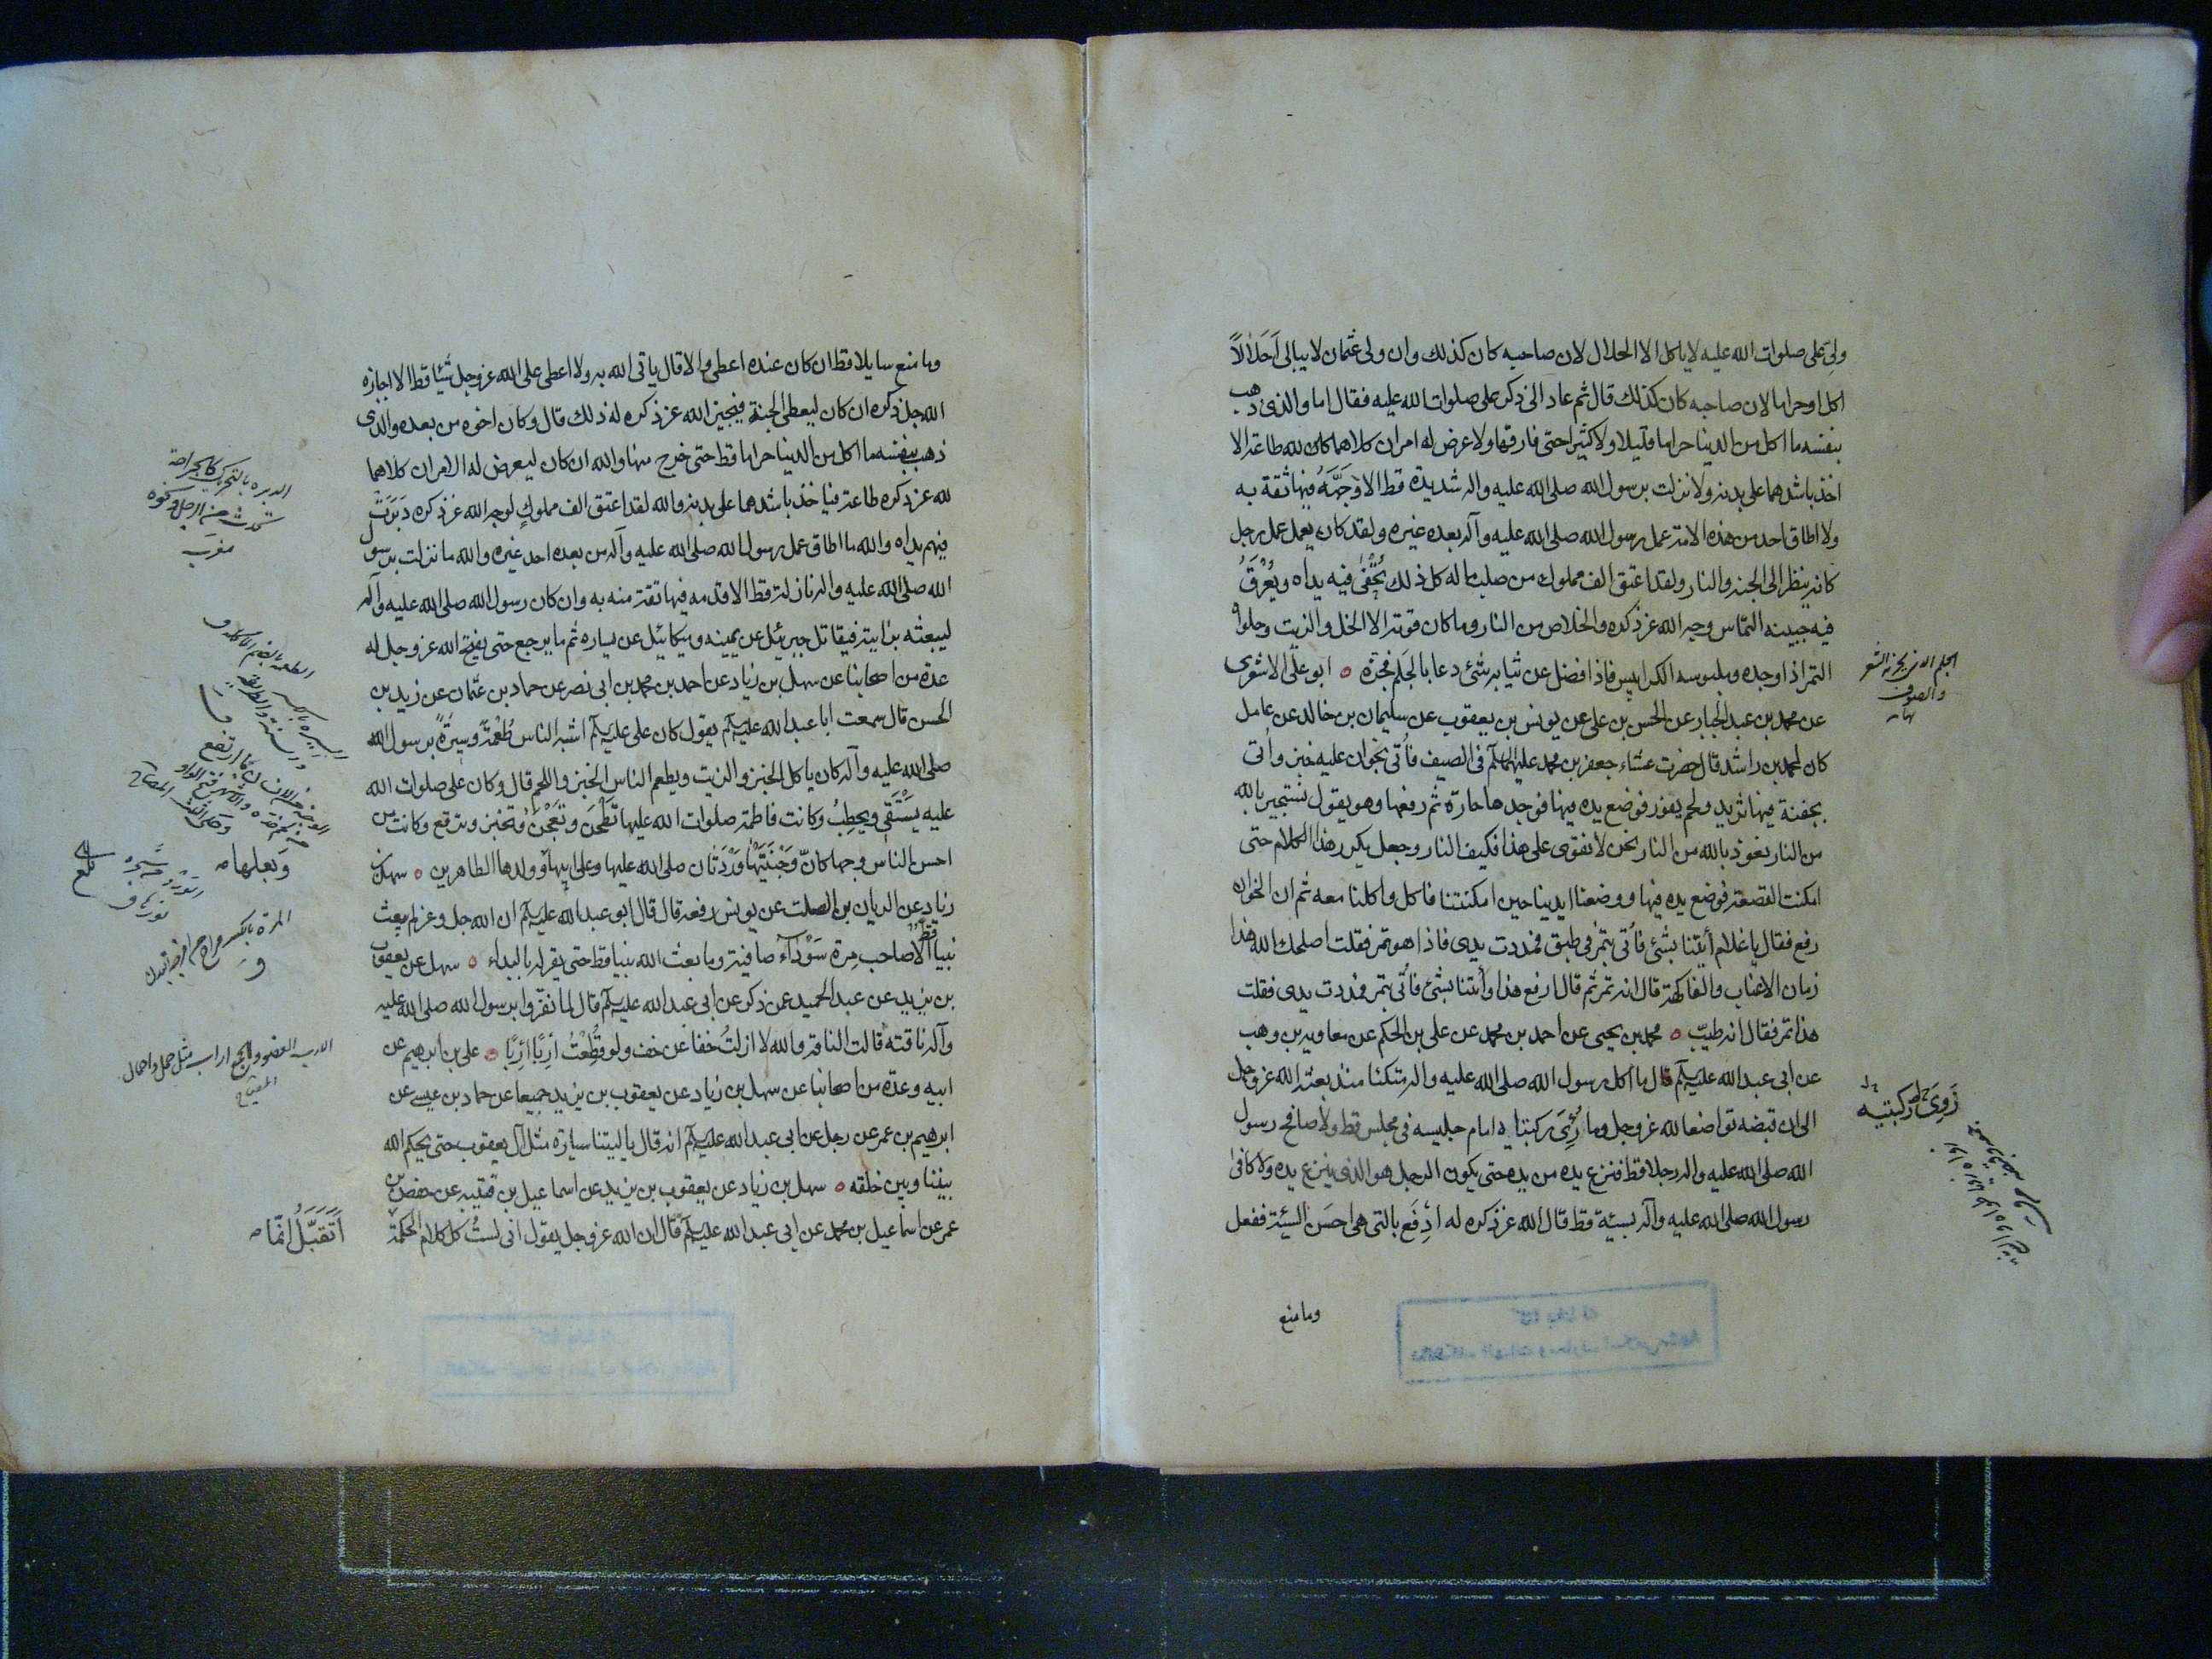 ولى على صلوات الله عليه لا ياكل الا الحلال لان صاحبه كان كذلك وان ولى عثمان لا يبالى أحَلالاً
اكل او حراما لان صاحبه كان كذلك قال ثم عاد الى ذكر على صلوات الله عليه فقال اما والذى ذهب
بنفسه ما اكل من الدنيا حراما قليلا ولا كثيرا حتى فارقها ولا عرض له امران كلاهما كان لله طاعة الا
اخذ باشدهما على بدنه ولا نزلت برسول الله صلى الله عليه واله شديدة قط الا وَجَّهَهُ فيها ثقة به
ولا اطاق احد من هذه الامة عمل رسول الله صلى الله عليه وآله بعده غيره ولقد كان يعمل عمل رجل
كانه ينظر الى الجنه والنار ولقد اعتق الف مملوك من صلب ماله كل ذلك تُحْفى فيه يداه ويُعْرَقُ
فيه جبينه التماس وجه الله عز ذكره والخلاص من النار وما كان قوته الا الخل والزيت وحلواه
التمر اذا وجده وملبوسه الكرابيس فاذا فضل عن ثيابه شئ دعا بالجَلَم فجزه ه ابو على الاشعرى
عن محمد بن عبد الجبار عن الحسن بن على عن يونس بن يعقوب عن سليمان بن خالد عن عامل
كان لمحمد بن راشد قال حضرت عشاء جعفر بن محمد عليهما السلم فى الصيف فأتى بخوان عليه خبز وأتى
بجفنة فيها ثريد ولحم يفور فوضع يده فيها فوجدها حارة ثم رفعها وهو يقول نستجير بالله
من النار نعوذ بالله من النار نحن لا نقوى على هذا فكيف النار وجعل يكرر هذا الكلام حتى
امكنت القصعة فوضع يده فيها ووضعنا ايدينا حين امكنتنا فاكل واكلنا معه ثم ان الخوان
رفع فقال يا غلام أيتنا بشئ فأتى بتمر فى طبق فمددت يدى فاذا هو تمر فقلت اصلحك الله هذا
زمان الاعناب والفاكهة قال انه تمر ثم قال ارفع هذا وأيتنا بشئ فأتى بتمر فمددت يدى فقلت
هذا تمر فقال انه طيب ه محمد بن يحيى عن احمد بن محمد عن على بن الحكم عن معاوية بن وهب
عن ابى عبد الله عليه السلم قال ما أكل رسول الله صلى الله عليه واله متكئا منذ بعثه الله عز وجل
الى ان قبضه تواضعا لله عز وجل وما رُئِىَ ركبتاه امام جليسه فى مجلس قط ولا صافح رسول
الله صلى الله عليه واله رجلا قط فنزع يده من يده حتى يكون الرجل هو الذى ينزع يده ولا كافى
رسول الله صلى الله عليه وآله بسيئة قط قال الله عز ذكره له أدفَع بالتى هى احسَن السيئة ففعل
وما منع
الجلم الذى يجز به الشعر
والصوف
نهاية
زَوى ركبتيه
وما منع سايلا قط ان كان عنده اعطى والا قال ياتى الله به ولا اعطى على الله عز وجل شيئا قط الا اجازه
الله جل ذكره ان كان ليعطى الجنة فيجيز الله عز ذكره له ذلك قال وكان اخوه من بعده والذى
ذهب بنفسه ما اكل من الدنيا حراما قط حتى خرج منها والله ان كان ليعرض له الامران كلاهما
لله عز ذكره طاعة فياخذ باشدهما على بدنه والله لقد اعتق الف مملوكٍ لوجه الله عز ذكره دَبَرَتْ
فيهم يداه والله ما اطاق عمل رسول الله صلى الله عليه وآله من بعده احد غيره والله ما نزلت برسول
الله صلى الله عليه واله نازلة قط الا قدمه فيها ثقة منه به وان كان رسول الله صلى الله عليه وآله
ليبعثه برايته فيقاتل جبريئل عن يمينه وميكائيل عن يساره ثم ما يرجع حتى يفتح الله عز وجل له
عدة من اصحابنا عن سهل بن زياد عن احمد بن محمد بن ابى نصر عن حماد بن عثمان عن زيد بن
الحسن قال سمعت ابا عبد الله عليه السلم يقول كان على عليه السلم اشبه الناس طُعْمَةً وسِيرَةً برسول الله
صلى الله عليه وآله كان ياكل الخبز والزيت ويطعم الناس الخبز واللحم قال وكان على صلوات الله
عليه يَسْتَقى ويحطِبُ وكانت فاطمة صلوات الله عليها تَطْحَنُ وتعْجنُ وتخبز وترقع وكانت من
احسن الناس وجها كانّ وَجْنَتَيْها وَرْدَتان صلى الله عليها وعلى ابيها وولدها الطاهرين ه سهل بن
زياد عن الريان بن الصلت عن يونس رفعه قال قال ابو عبد الله عليه السلم ان الله جل وعز لم يبعث
نبيا قط الا صاحب مِرة سَوْدآء صافية وما بعث الله نبيا قط حتى يقر له بالبداء ه سهل عن يعقوب
بن يزيد عن عبد الحميد عمن ذكره عن ابى عبد الله عليه السلم قال لما نفّروا برسول الله صلى الله عليه
وآله ناقته قالت الناقة والله لا ازلتُ خفا عن خف ولو قُطِّعْتُ أرِبًا أرِبًا ه على بن ابرهيم عن
ابيه وعدة من اصحابنا عن سهل بن زياد عن يعقوب بن يزيد جميعا عن حماد بن عيسى عن
ابرهيم بن عمر عن رجل عن ابى عبد الله عليه السلم انه قال يا ليتنا سيارة مثل آل يعقوب حتى يحكم الله
بيننا وبين خلقه ه سهل بن زياد عن يعقوب بن يزيد عن اسماعيل بن قتيبه عن حفص بن
عمر عن اسماعيل بن محمد عن ابى عبد الله عليه السلم قال ان الله عز وجل يقول انى لستُ كل كلام الحكمة
الدبره بالتحريك كالجراحة
تحدث من الرحل ونحوه
مغرب
وبعلها صه
بلغ
الارب العضو والجمع اراب مثل حمل واحمال
المصباح
أتَقَبَّلُ انّما صه